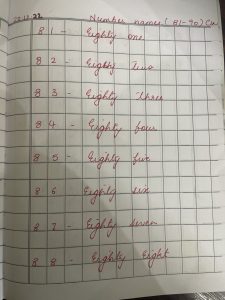 Number names (81-90) Cw
81 - Eighty one
82 - Eighty Two
83 - Eighty Three
84 - Eighty four
85 - Eighty five
86 Eighty six
87 - Eighty seven
88 - Eighty Eight